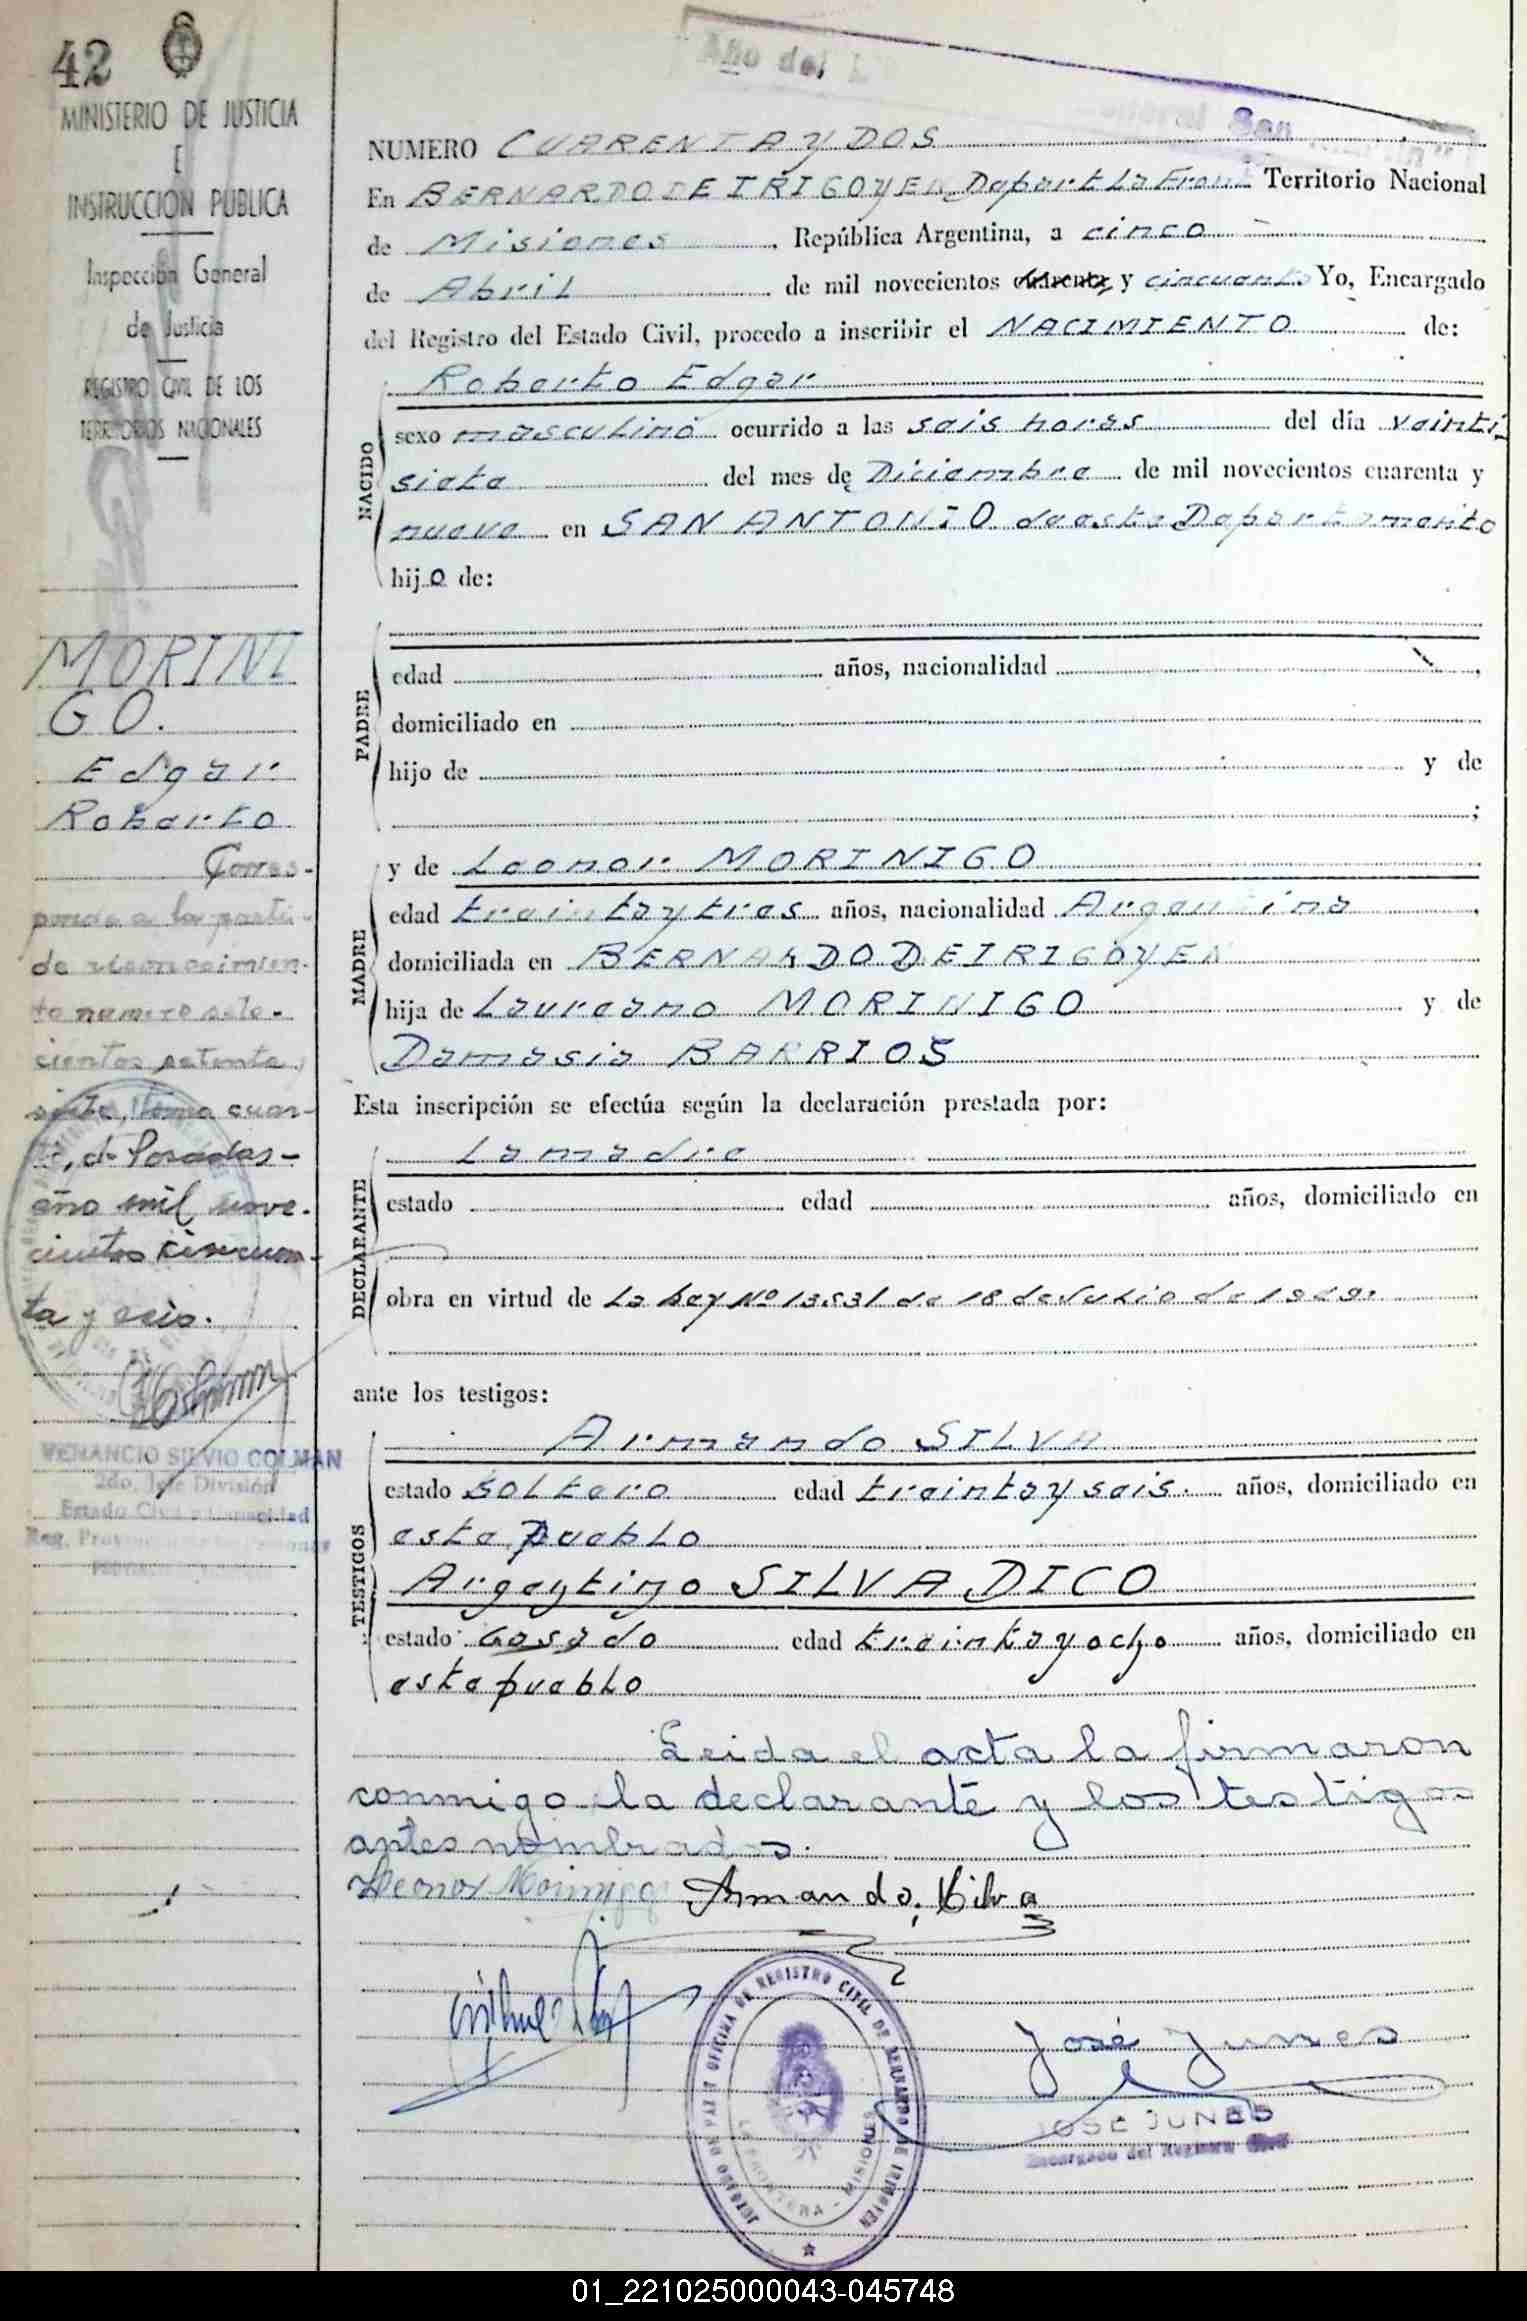 42
MINISTERIO DE JUSTICIA
E
INSTRUCCION PUBLICA
Inspección General
de Justicia
REGISTRO CIVIL DE LOS
TERRITORIOS NACIONALES
MORINI
GO.
Edgar
Roberto
Corres-
ponde a la parti-
da reconocimien-
to numero sete-
cientos setenta y
siete, tomo cuar-
to, de Posadas-
año mil nove-
cientos cincuen-
ta y seis.
VENANCIO SILVIO COLMAN
2do. Jefe División
Estado Civil y Capacidad
Reg. Provincial de las Personas
Año del L
General San
NUMERO CUARENTA Y DOS
En BERNARDO DE IRIGOYEN Depart La Front Territorio Nacional
de Misiones, República Argentina, a cinco
de Abril de mil novecientos cuarenta y cincuenta Yo, Encargado
del Registro del Estado Civil, procedo a inscribir el NACIMIENTO de:
Roberto Edgar
NACIDO
sexo masculino ocurrido a las seis horas del día veinti
siete del mes de Diciembre de mil novecientos cuarenta y
nueve en SAN ANTONIO de este Departamento
hijo de:
PADRE
edad años, nacionalidad ,
domiciliado en
hijo de y de
;
y de Leonor MORINIGO
MADRE
edad treinta y tres años, nacionalidad Argentina ,
domiciliada en BERNARDO DE IRIGOYEN
hija de Laureano MORINIGO y de
Damasia BARRIOS
Esta inscripción se efectúa según la declaración prestada por:
La madre
DECLARANTE
estado edad años, domiciliado en
obra en virtud de La Ley Nº 13531 de 18 de Julio de 1949.
ante los testigos:
Armando SILVA
TESTIGOS
estado soltero edad treinta y seis. años, domiciliado en
este pueblo
Argentino SILVA DICO
estado casado edad treinta y ocho años, domiciliado en
este pueblo
Leida el acta la firmaron
conmigo la declarante y los testigos
antes nombrados.
Leonor Morinigo Armando Silva
José Junes
JOSE JUNES
Encargado del Registro Civil
JUZGADO DE PAZ Y OFICINA DE REGISTRO CIVIL DE BERNARDO DE IRIGOYEN
LA FRONTERA - MISIONES
01_221025000043-045748